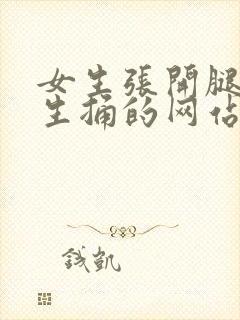 女生張開腿
生捅的网佔
錢凱